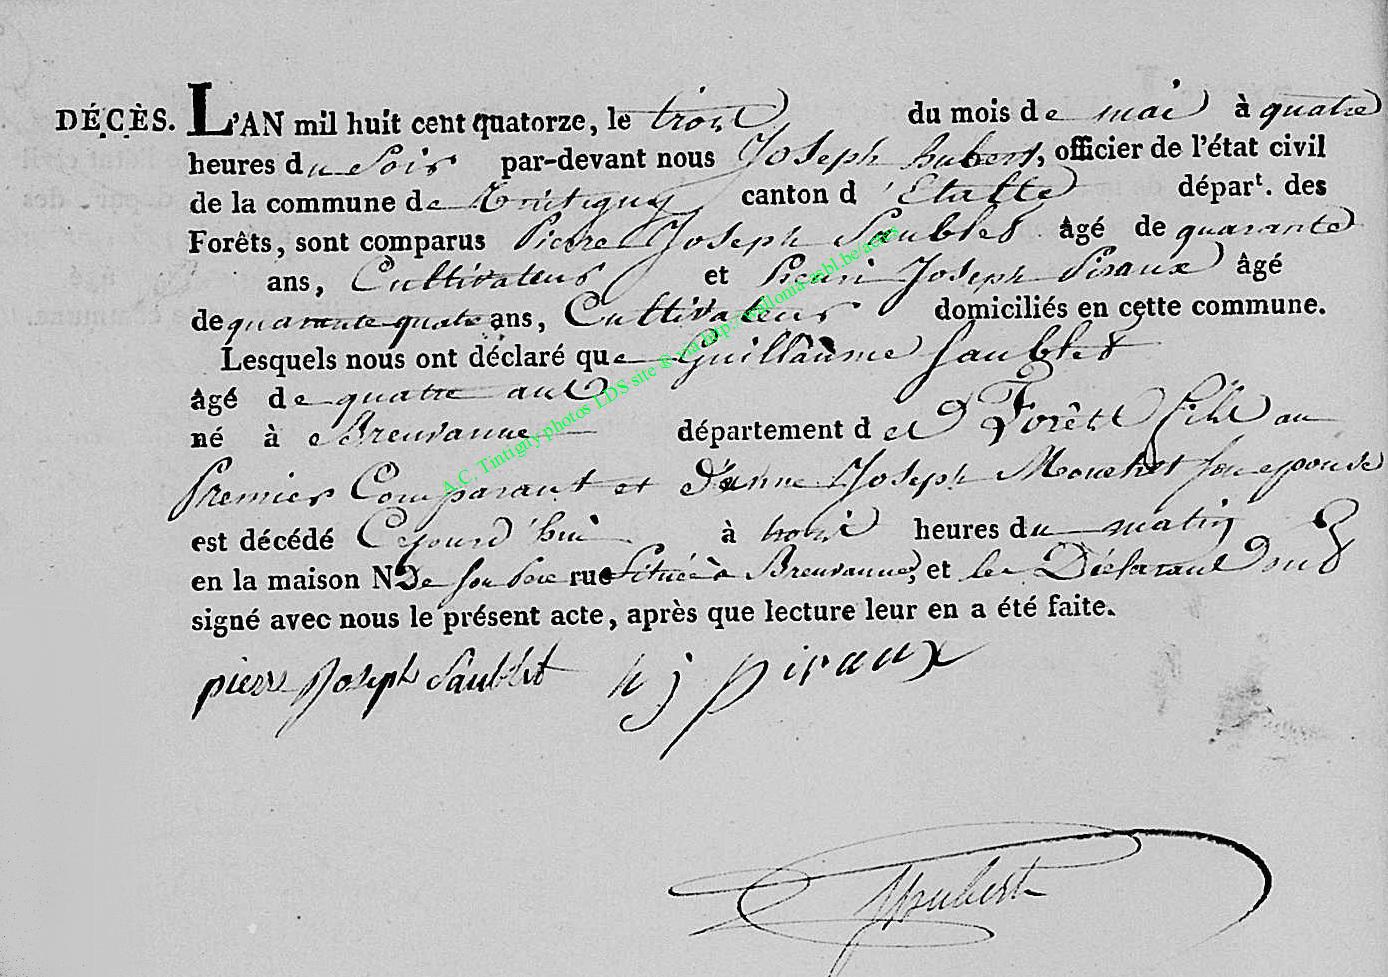 DÉCÈS. L'AN mil huit cent quatorze, le trois du mois de mai à quatre
heures du Soir par-devant nous Joseph hubert, officier de l'état civil
de la commune de Tintigny canton d'Etalle départ. des
Forêts, sont comparus Pierre Joseph Saublet âgé de quarante
ans, Cultivateur et henri Joseph Piraux âgé
de quarante quatre ans, Cultivateur domiciliés en cette commune.
Lesquels nous ont déclaré que Guillaume Saublet
âgé de quatre ans
né à Breuvanne département des Forêts fils au
Premier Comparant et d'anne Joseph Mouchet son epouse
est décédé Cejourd'hui à trois heures du matin
en la maison N De son Pere rue Située à Breuvanne, et les Déclarant ont
signé avec nous le présent acte, après que lecture leur en a été faite.
pierre Joseph Saublet h j piraux
JHubert
A.C. Tintigny photos LDS site via http://wallonia-asbl.be/actes